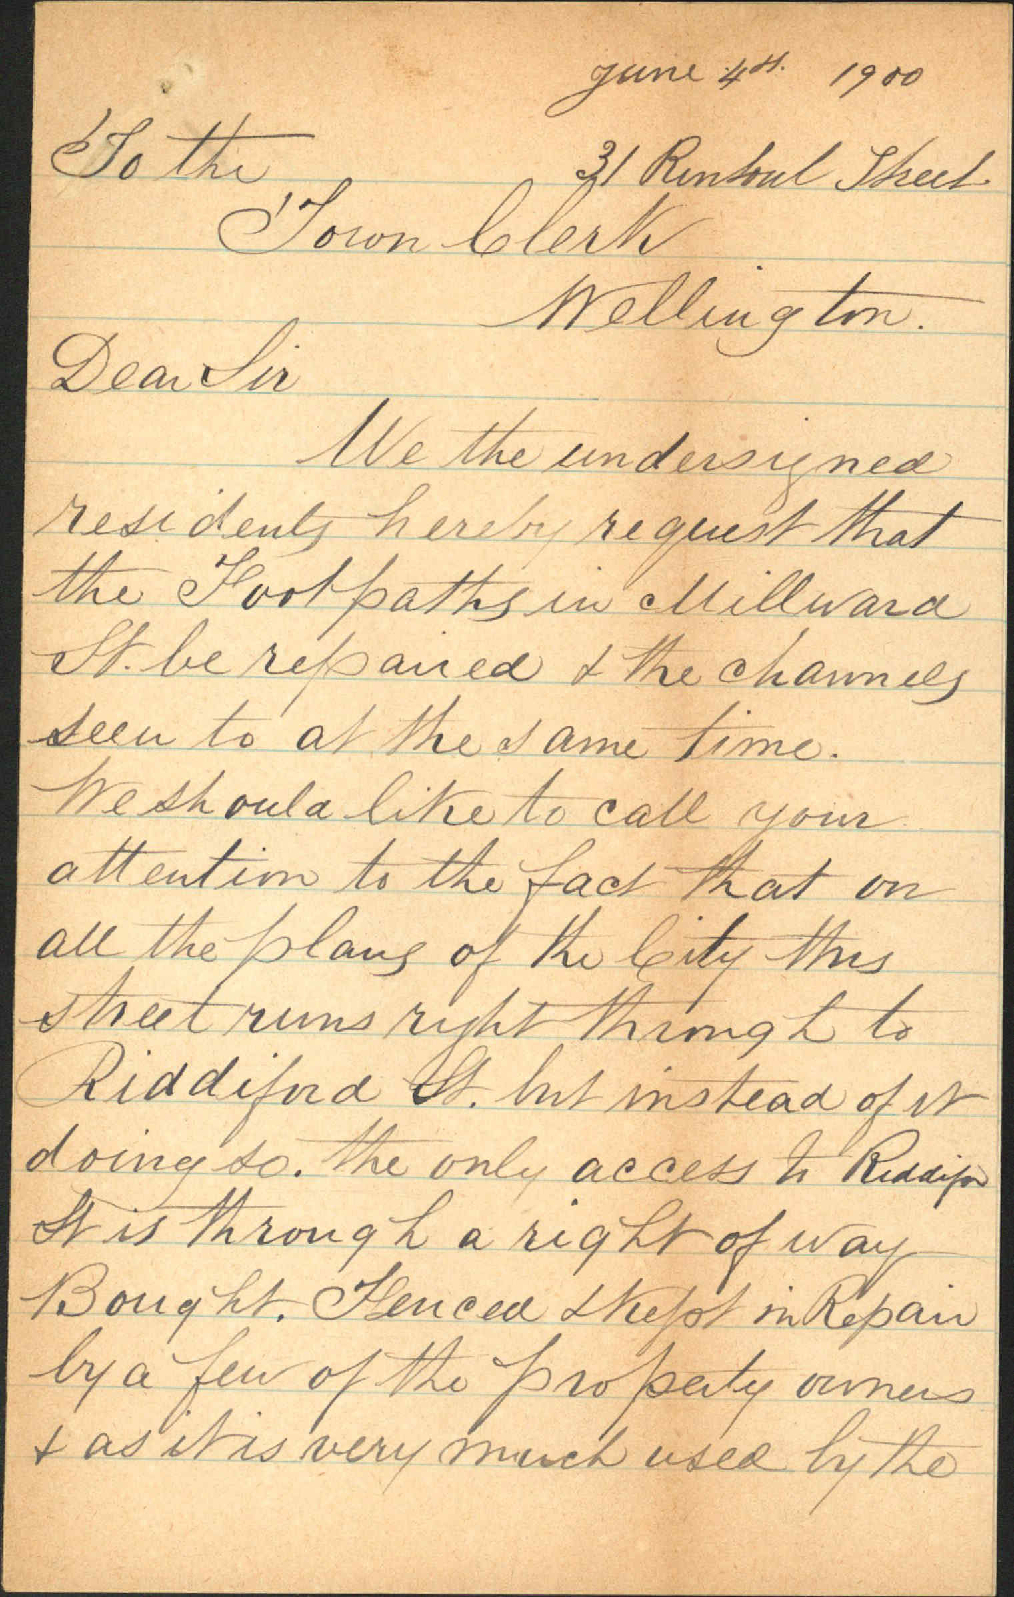 June 4th. 1900
To the
31 Rintoul Street
Town Clerk
Wellington.
Dear Sir
We the undersigned
residents hereby request that
the Footpaths in Millward
St. be repaired & the channels
seen to at the same time.
We should like to call your
attention to the fact that on
all the plans of the City this
street runs right through to
Riddiford St. but instead of it
doing so. the only access to Riddifor
St is through a right of way
Bought. Fenced & kept in Repair
by a few of the property owners
& as it is very much used by the